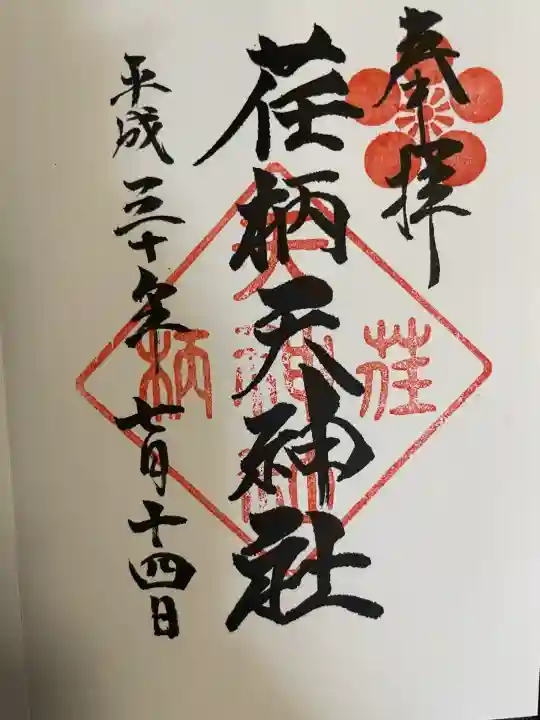 奉拝
荏柄天神社
平成三十年七月十四日
荏
天神社
柄